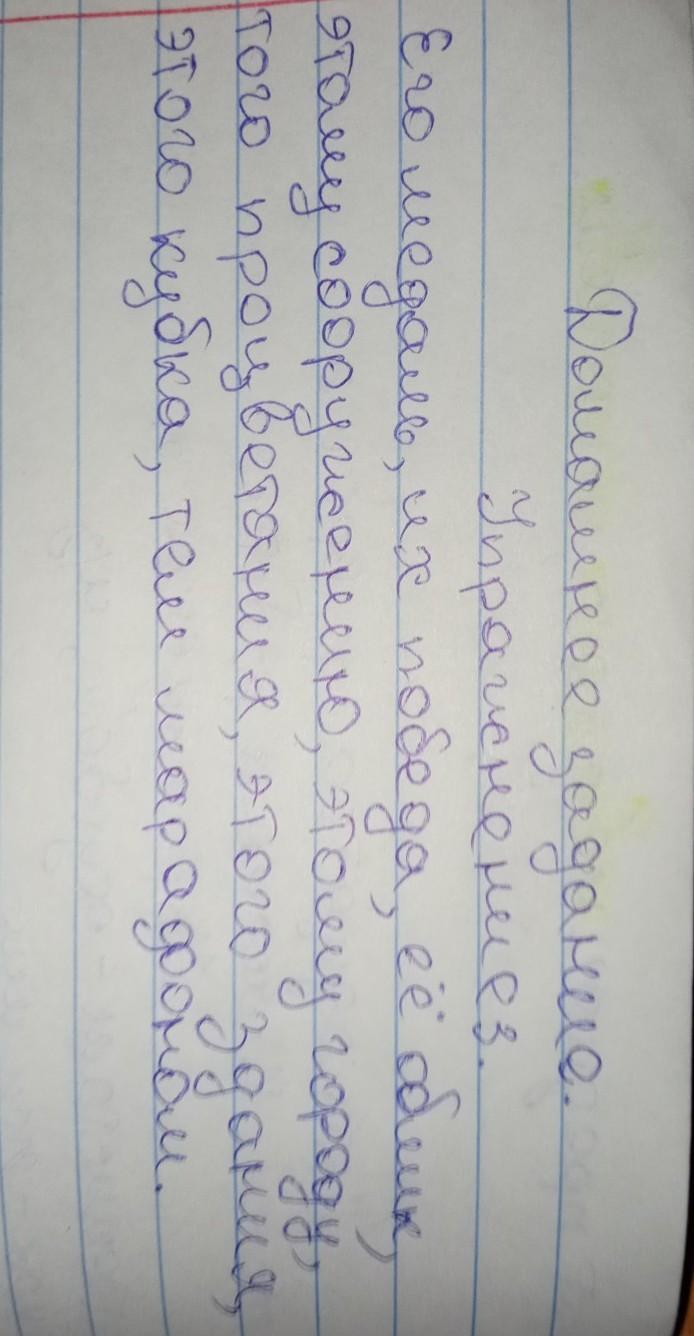 Домашнее задание.
Упражнение 3.
Его медаль, их победа, её облик,
этому сооружению, этому городу,
того процветания, этого здания,
этого кубка, тем марафоном.